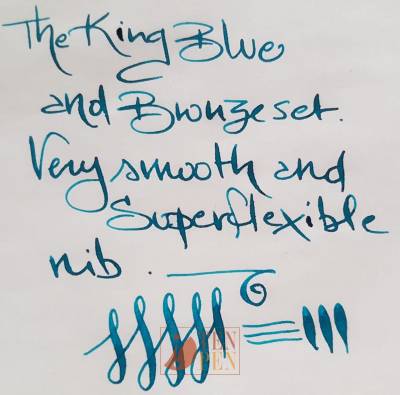 The King Blue
and Bronze set.
Very smooth and
Superflexible
nib.
PEN
PEN